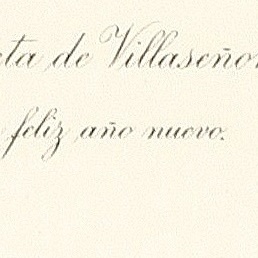 eta de Villaseñor
feliz año nuevo.